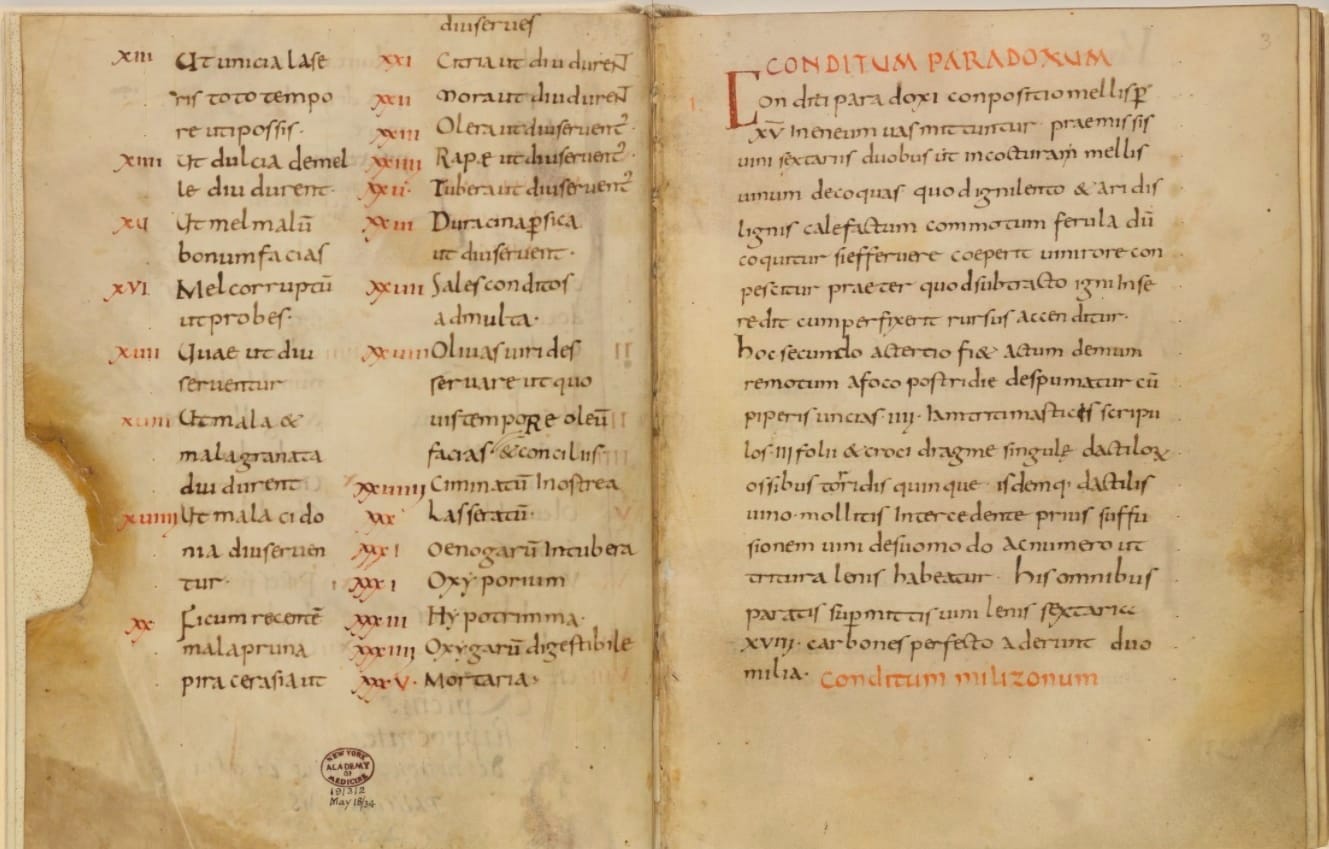 XIII Ut unicia lase
ris toto tempo
re uti possis·
XIIII Ut dulcia demel
le diu durent·
XV Ut mel malū
bonum facias
XVI Mel corruptū
ut probes·
XVII Quae ut diu
serventur
XVIII Ut mala &
mala granata
diu durent
XVIIII Ut mala cido
nia diu serven
tur·
XX Ficum recentē
mala pruna
pira cerasia ut
diu serves
XXI Citria ut diu durent
XXII Mora ut diu durent
XXIII Olera ut diu servent᷒·
XXIIII Rapę ut diu servent᷒·
XXV· Tubera ut diu servent᷒
XXVI Duracina ꝑsica
ut diu servent·
XXVII Sales conditos
ad multa·
XXVIII Olivas virides
servare ut quo
vis tempoRe oleū
facias· & concilus
XXVIIII Ciminatū In ostrea
XXX Lasseratū·
XXXI Oenogarū In tubera
XXXI Oxyporium
XXXIII Hypotrimma·
XXXIIII Oxygarū digestibile
XXXV· Mortaria·
NEW YORK
ACADEMY
OF
MEDICINE
19/3/2
May 18/34
3
CONDITUM PARADOXUM
I Conditi paradoxi conpositio mellis ꝑ
XV In eneum vas mittuntur praemissis
vini sextariis duobus ut in cocturam mellis
vinum decoquas quod igni lento & aridis
lignis calefactum commotum ferula dū
coquitur si effervere coeperit vini rore con
pescitur praeter quod subtracto igni In se
redit cum perfixerit rursus accenditur·
hoc secundo ac tertio fi& actum demum
remotum a foco postridie despumatur cū
piperis uncias· IIII· Iam triti masticis scripu
los· III folii & croci dragme singulę dactiloꝝ
ossibus torridis quinque isdemq; dactilis
vino· mollitis Intercedente prius suffu
sionem vini de suo modo ac numero ut
tritura lenis habeatur· his omnibus
paratis suꝑmittis vini lenis sextaricc
XVIII· carbones perfecto aderunt duo
milia· Conditum milizonum